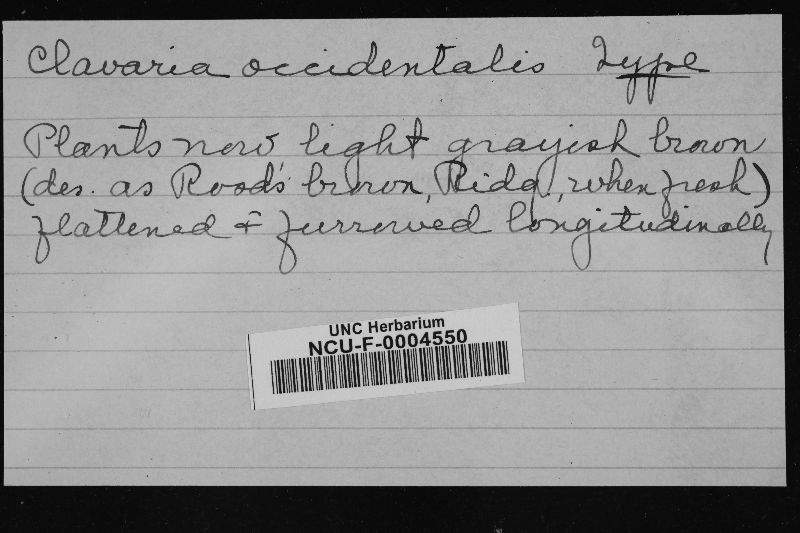 Clavaria occidentalis Type
Plants now light grayish brown
(des. as Rood's brown, Ridg., when fresh)
flattened & furrowed longitudinally
UNC Herbarium
NCU-F-0004550